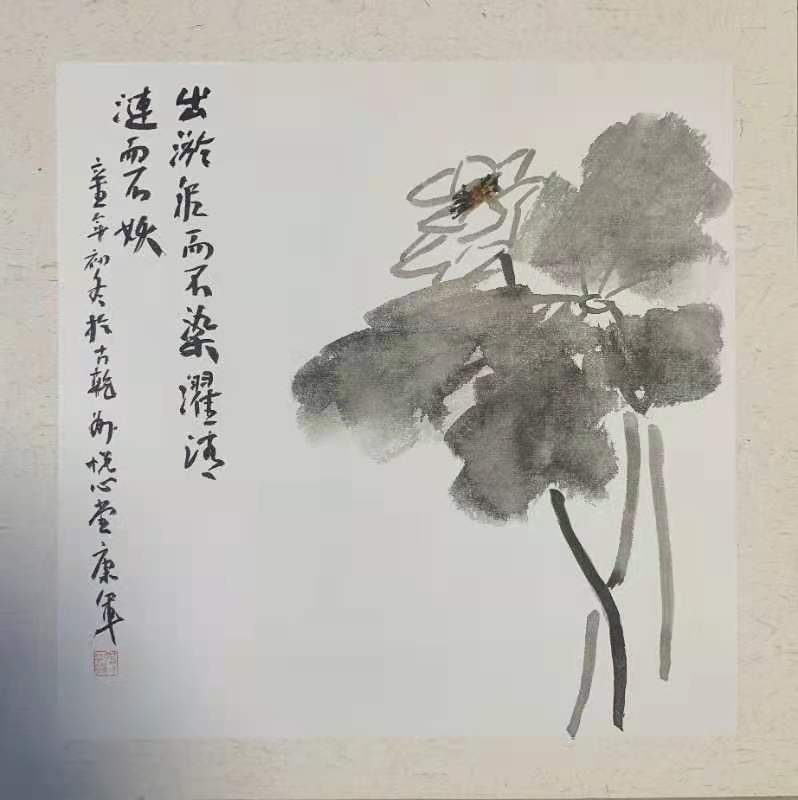 出淤泥而不染濯清
漣而不妖
辛丑年初冬於古乾州悦心堂康軍